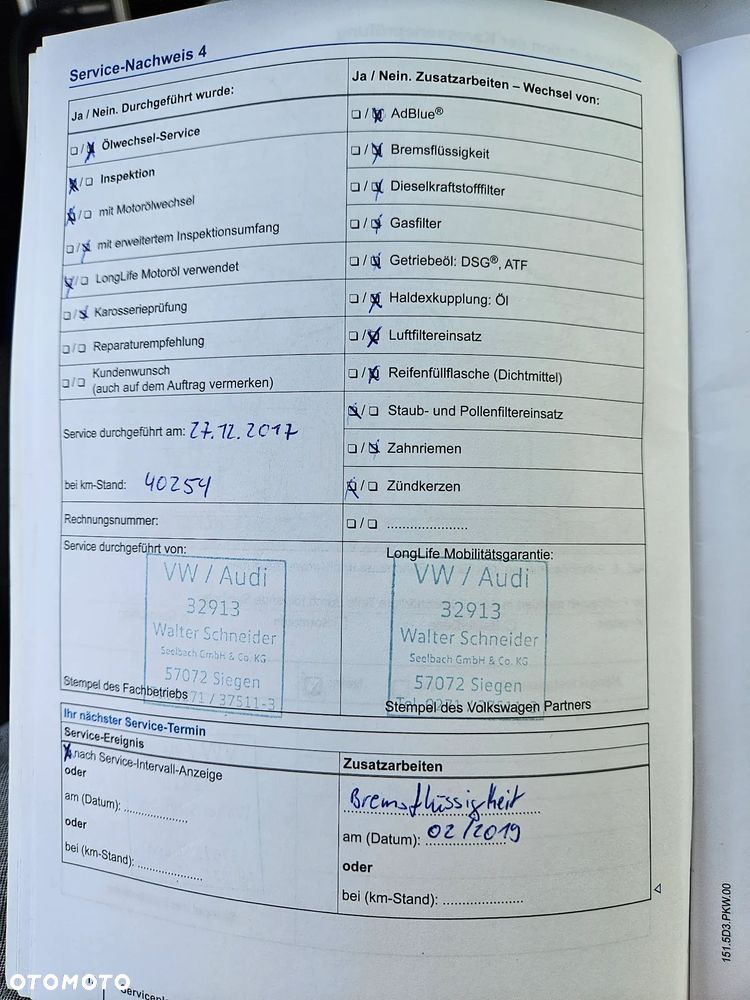 Service-Nachweis 4
Ja / Nein. Durchgeführt wurde:
☐/☒ Ölwechsel-Service
☒/☐ Inspektion
☒/☐ mit Motorölwechsel
☐/☒ mit erweitertem Inspektionsumfang
☒/☐ LongLife Motoröl verwendet
☐/☒ Karosserieprüfung
☐/☐ Reparaturempfehlung
☐/☐ Kundenwunsch
(auch auf dem Auftrag vermerken)
Service durchgeführt am: 27.12.2017
bei km-Stand: 40254
Rechnungsnummer:
Service durchgeführt von:
VW / Audi
32913
Walter Schneider
Seelbach GmbH & Co. KG
57072 Siegen
271 / 37511-3
Stempel des Fachbetriebs
Ja / Nein. Zusatzarbeiten – Wechsel von:
☐/☒ AdBlue®
☐/☒ Bremsflüssigkeit
☐/☒ Dieselkraftstofffilter
☐/☒ Gasfilter
☐/☒ Getriebeöl: DSG®, ATF
☐/☒ Haldexkupplung: Öl
☐/☒ Luftfiltereinsatz
☐/☒ Reifenfüllflasche (Dichtmittel)
☒/☐ Staub- und Pollenfiltereinsatz
☐/☒ Zahnriemen
☒/☐ Zündkerzen
☐/☐ .....................
LongLife Mobilitätsgarantie:
VW / Audi
32913
Walter Schneider
Seelbach GmbH & Co. KG
57072 Siegen
Tel. 0271
Stempel des Volkswagen Partners
Ihr nächster Service-Termin
Service-Ereignis
☒ nach Service-Intervall-Anzeige
oder
am (Datum): .................
oder
bei (km-Stand): .................
Zusatzarbeiten
Bremsflüssigkeit
am (Datum): 02/2019
oder
bei (km-Stand): .....................
151.5D3.PKW.00
OTOMOTO